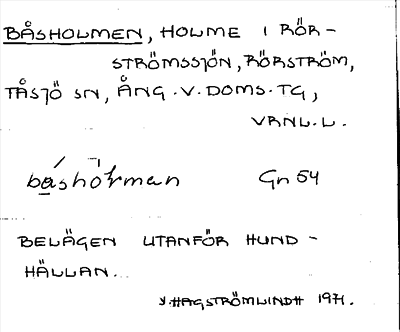 BÅSHOLMEN, HOLME I RÖR-
STRÖMSSJÖN, RÖRSTRÖM,
TÅSJÖ SN, ÅNG.V.DOMS.TG,
VRNL.L.
båshoɫmɘn Gn 54
BELÄGEN UTANFÖR HUND-
HÄLLAN.
HAGSTRÖMLINDH 1971.